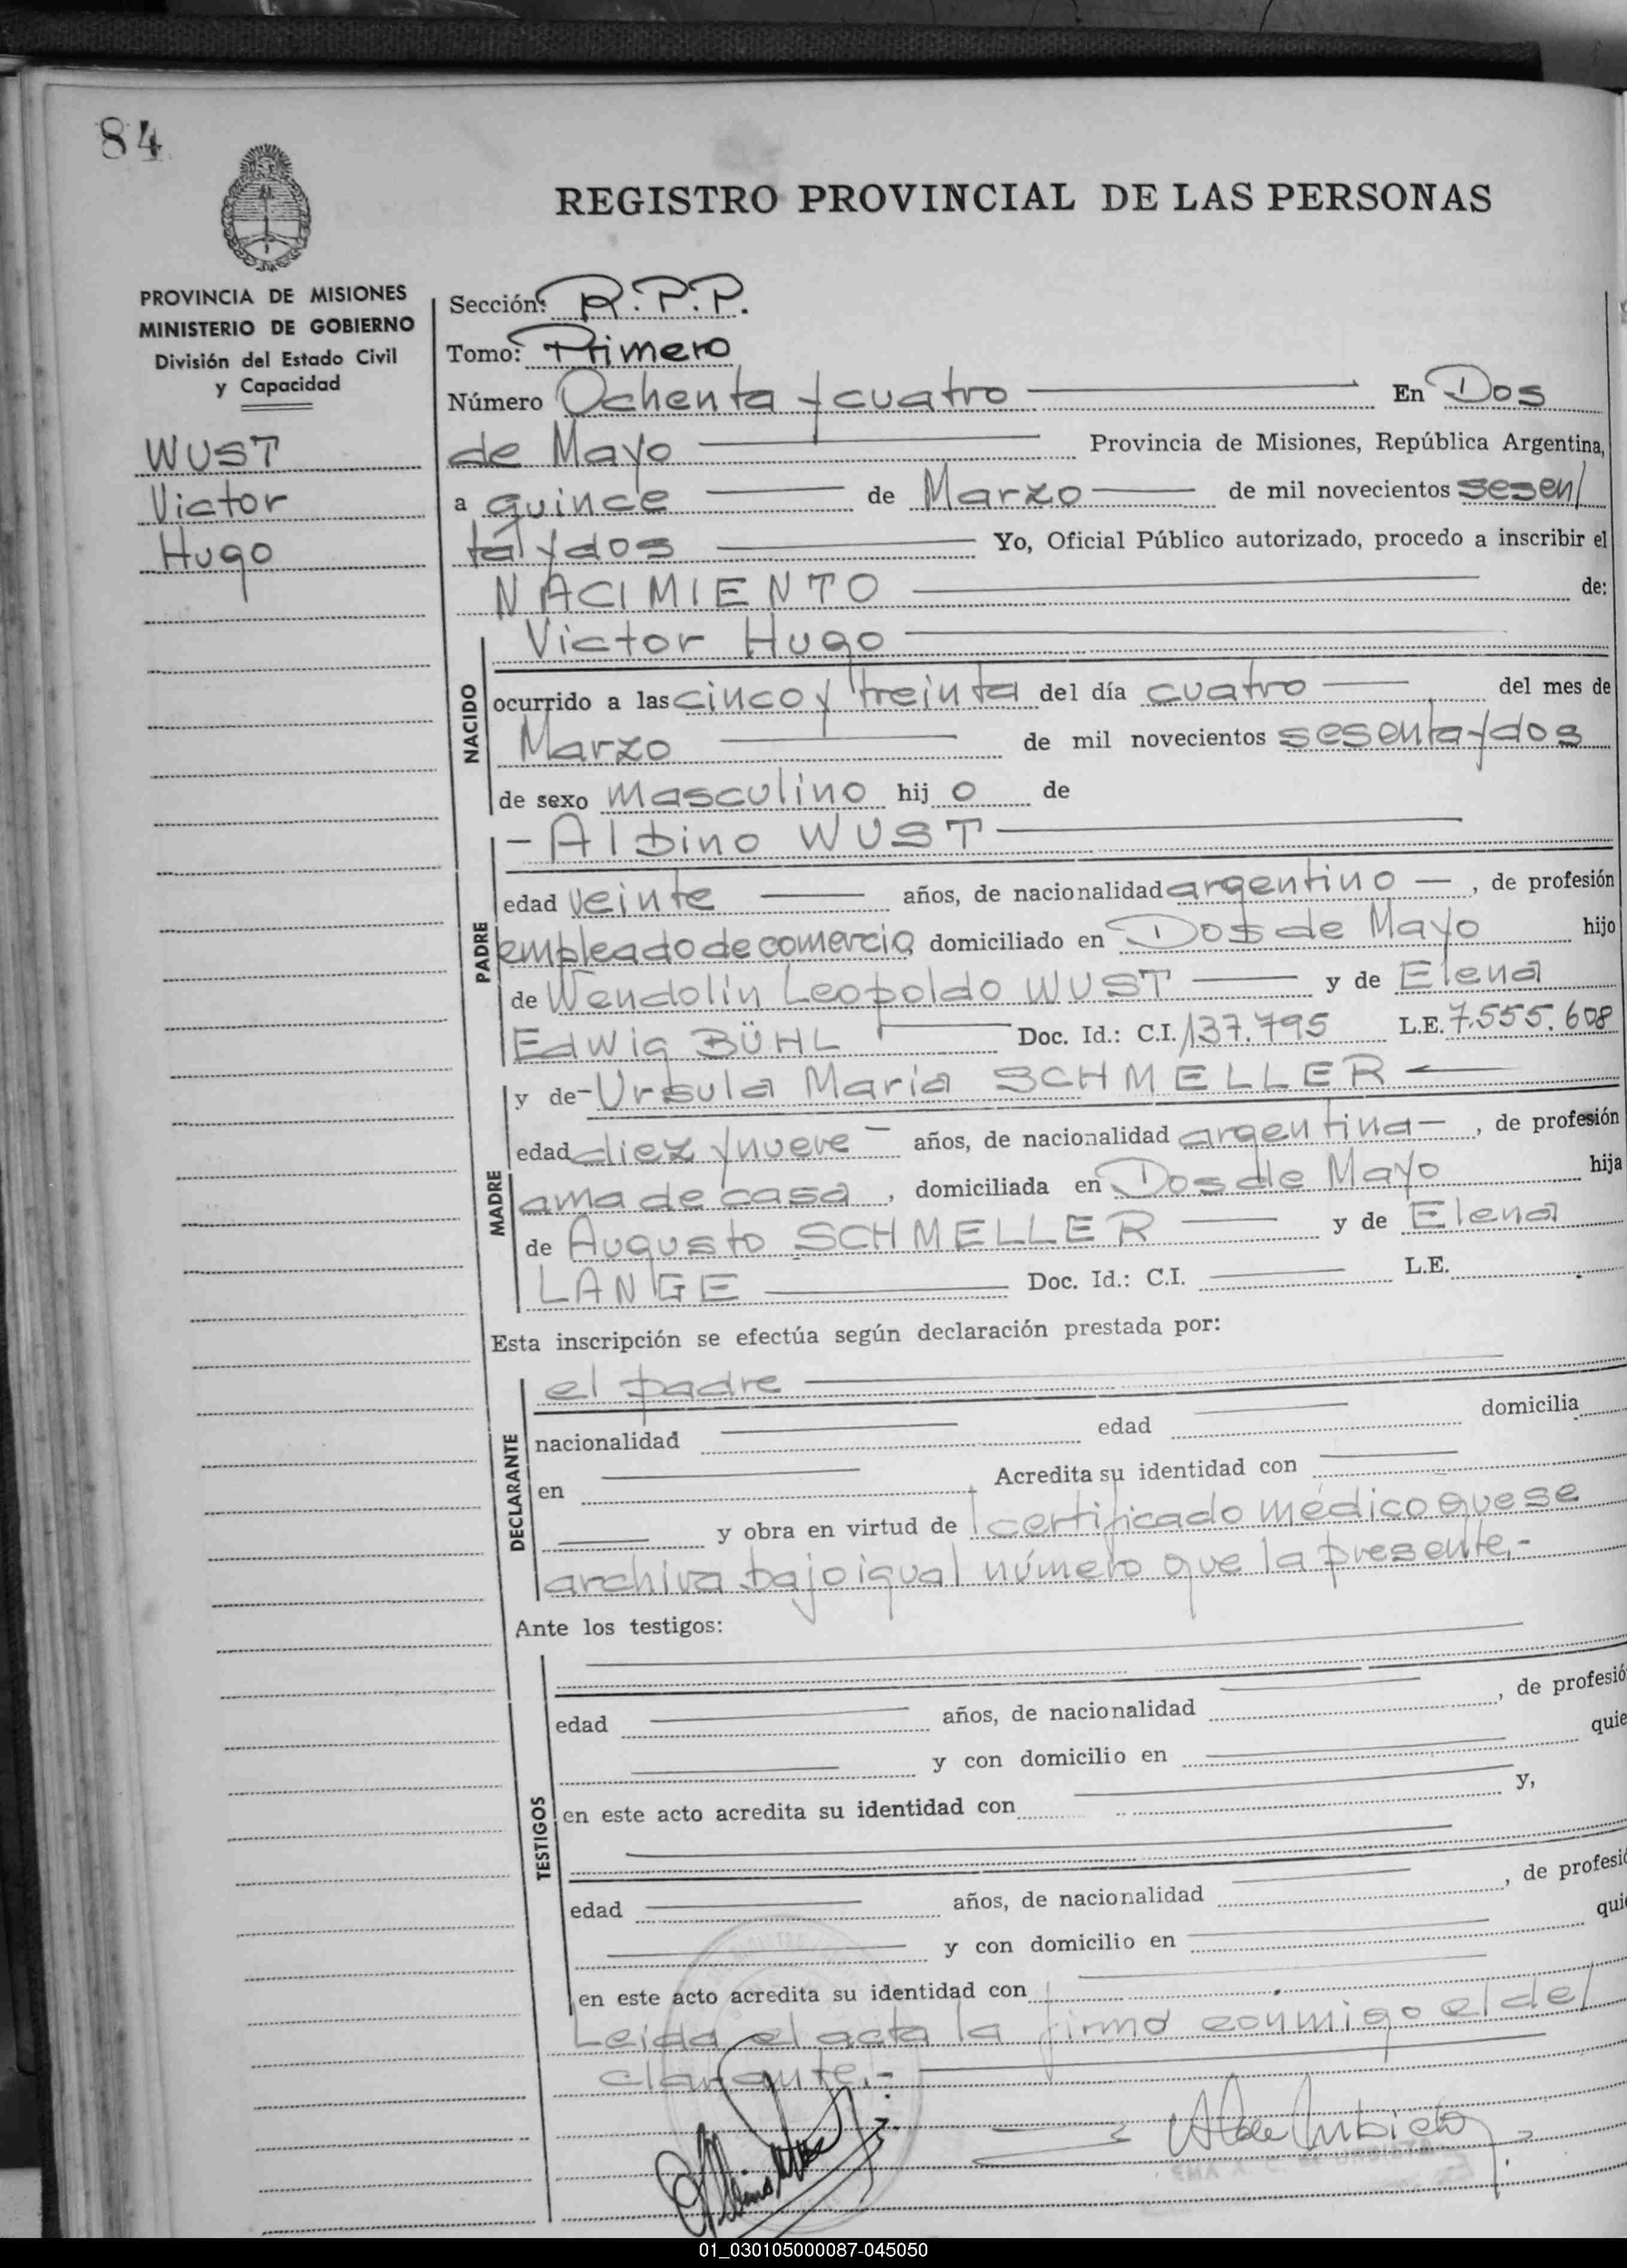 84
REGISTRO PROVINCIAL DE LAS PERSONAS
PROVINCIA DE MISIONES
MINISTERIO DE GOBIERNO
División del Estado Civil
y Capacidad
WUST
Victor
Hugo
Sección: R.P.P.
Tomo: Primero
Número Ochenta y cuatro En Dos
de Mayo Provincia de Misiones, República Argentina,
a quince de Marzo de mil novecientos sesen/
ta y dos Yo, Oficial Público autorizado, procedo a inscribir el
NACIMIENTO de:
NACIDO
Victor Hugo
ocurrido a las cinco y treinta del día cuatro del mes de
Marzo de mil novecientos sesenta y dos
de sexo masculino hij o de
PADRE
- Albino WUST
edad veinte años, de nacionalidad argentino, de profesión
empleado de comercio, domiciliado en Dos de Mayo hijo
de Wendolín Leopoldo WUST y de Elena
Edwig BÜHL Doc. Id.: C.I. 137.795 L.E. 7.555.608
MADRE
y de - Ursula Maria SCHMELLER
edad diez y nueve años, de nacionalidad argentina, de profesión
ama de casa, domiciliada en Dos de Mayo hija
de Augusto SCHMELLER y de Elena
LANGE Doc. Id.: C.I. L.E.
Esta inscripción se efectúa según declaración prestada por:
DECLARANTE
el padre
nacionalidad edad domicilia
en Acredita su identidad con
y obra en virtud de certificado médico que se
archiva bajo igual número que la presente.-
Ante los testigos:
TESTIGOS
edad años, de nacionalidad , de profesió
y con domicilio en quie
en este acto acredita su identidad con y,
edad años, de nacionalidad , de profesió
y con domicilio en quie
en este acto acredita su identidad con
Leida el acta la firmó conmigo el de/
clarante.-
01_030105000087-045050